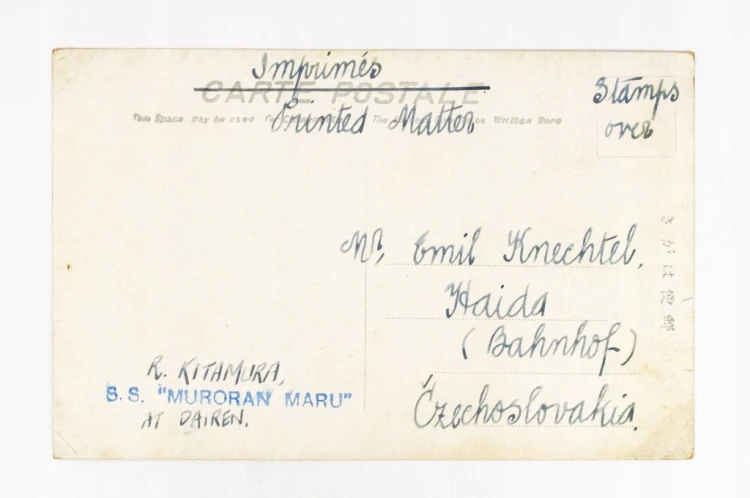 Imprimés
CARTE POSTALE
Printed Matter
This Space may be used for The be Written Here
Stamps
over
Mr. Emil Knechtel,
Haida
(Bahnhof)
Czechoslovakia.
きがは便郵
R. KITAMURA,
S. S. "MURORAN MARU"
AT DAIREN.